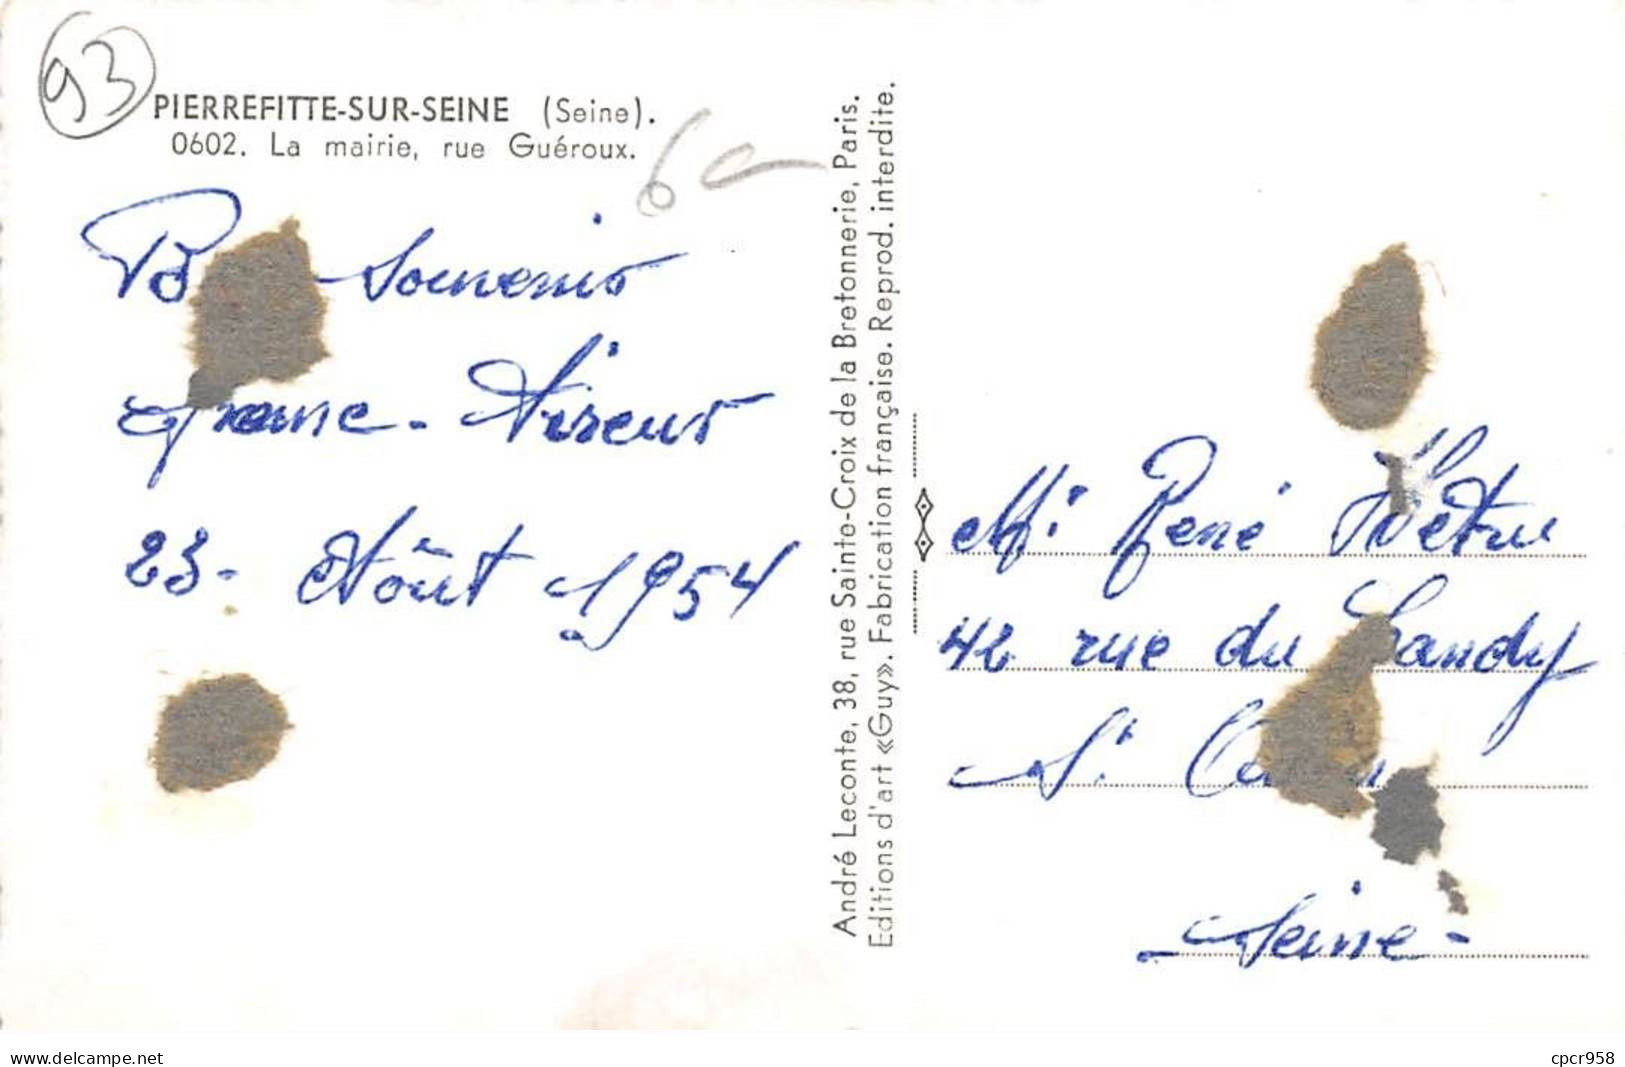 93
PIERREFITTE-SUR-SEINE (Seine).
0602. La mairie, rue Guéroux.
6
Souvenir
23 - Août 1954
André Leconte, 38, rue Sainte-Croix de la Bretonnerie, Paris.
Editions d'art «Guy». Fabrication française. Reprod. interdite.
Mr René
42 rue du Landy
St
Seine -
www.delcampe.net
cpcr958